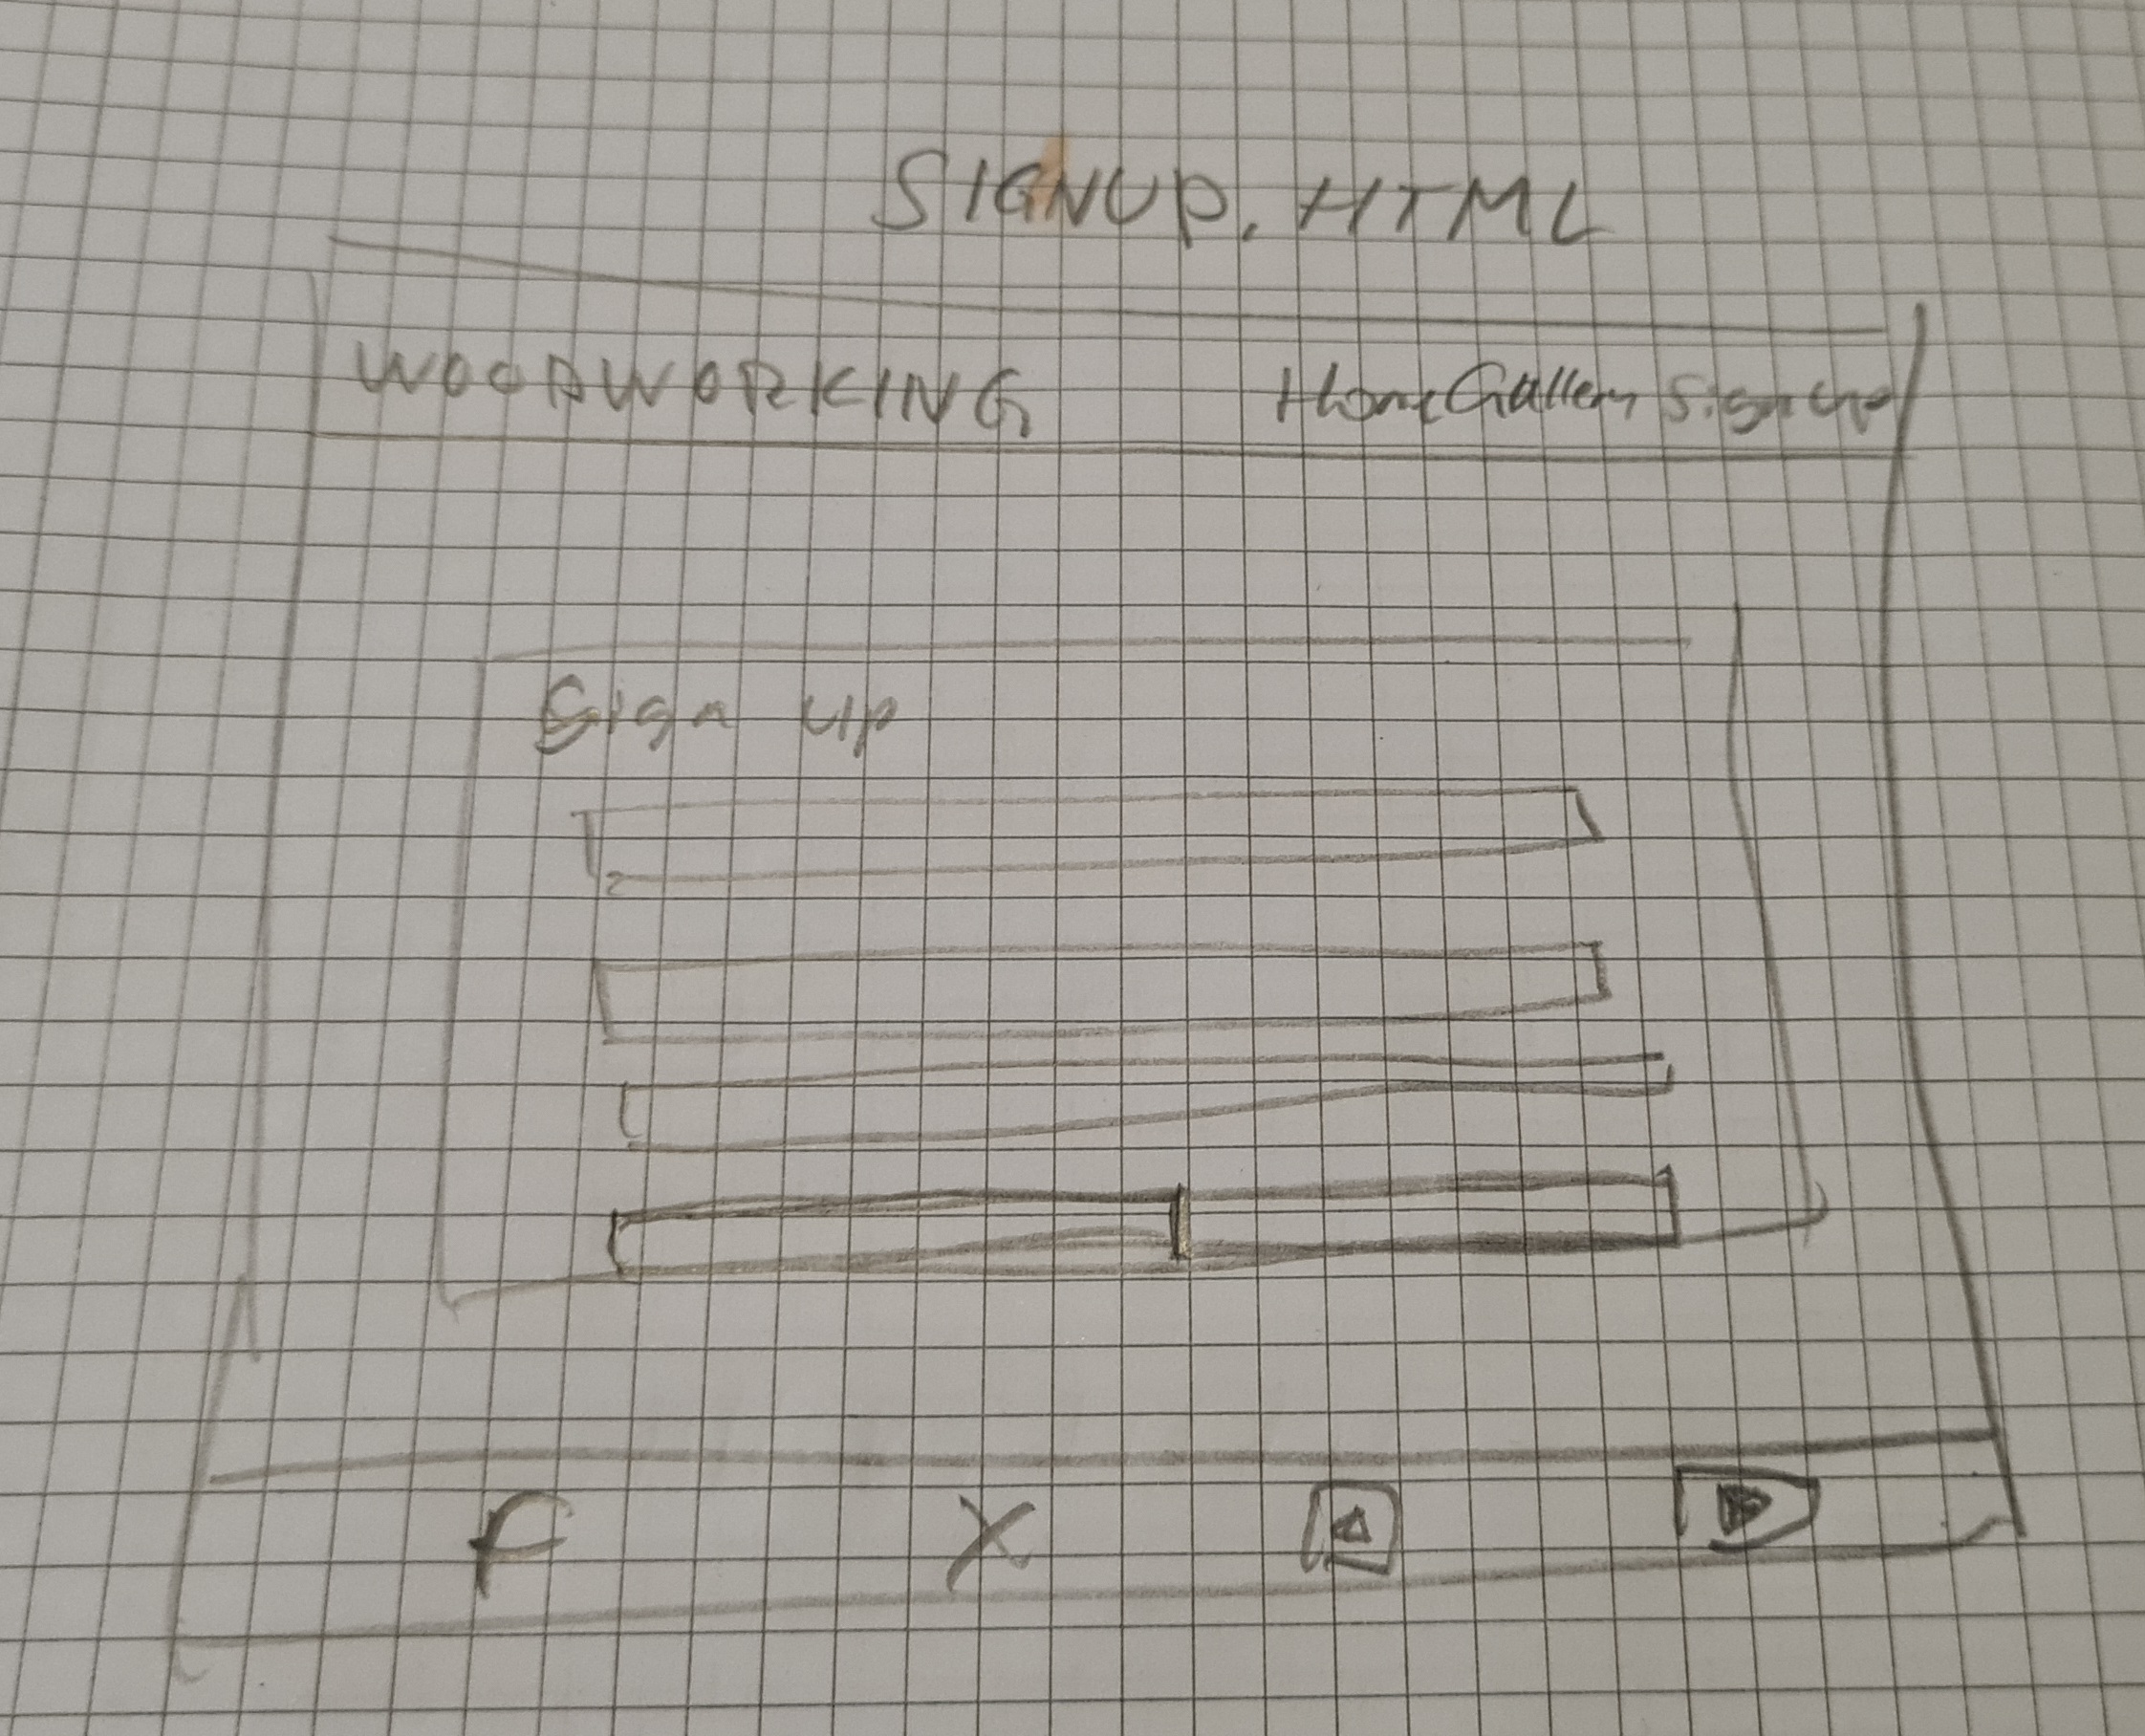 SIGNUP.HTML
WOODWORKING Home Gallery Sign up
Sign up
f X